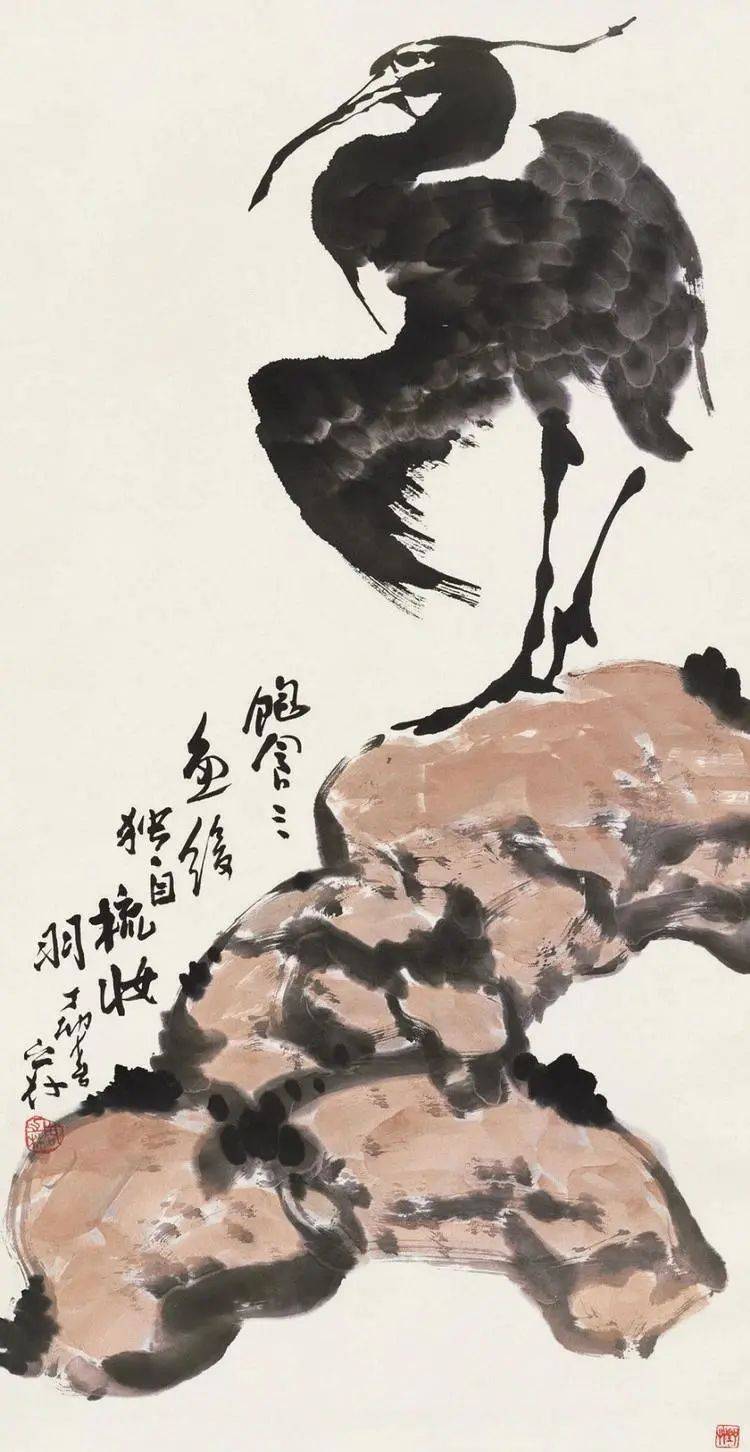 飽食三
魚後
独自
梳妝
羽
丁卯春